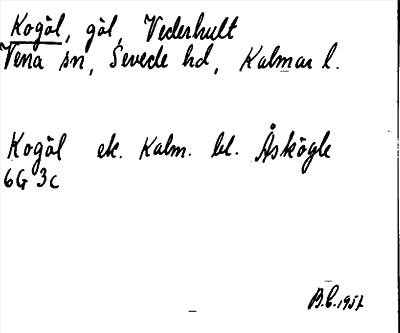 Kogöl, göl, Vederhult
Vena sn, Sevede hd, Kalmar l.
Kogöl ek. Kalm. bl. Åskögle
6G 3c
B.C. 1957